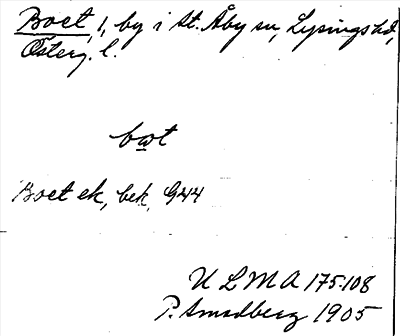 Boet, 1, by i St. Åby sn, Lysings hd,
Österg. l.
bωt
Boet ek, bek, G44
ULMA 175:108
P. Smedberg 1905